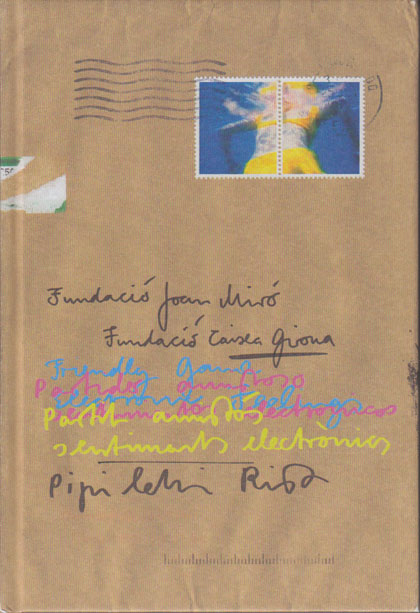 Fundació Joan Miró
Fundació Caixa Girona
Friendly Game
Partido amistoso
electronic Feelings
sentimientos electrónicos
Partit amistós
sentiments electrònics
Pipilotti Rist